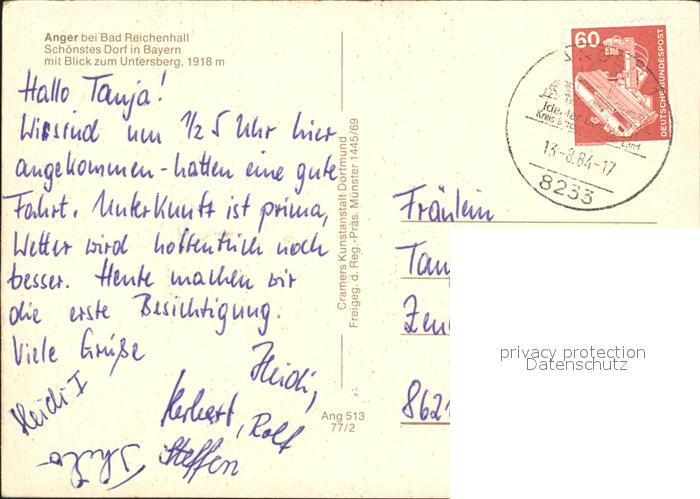 Anger bei Bad Reichenhall
Schönstes Dorf in Bayern
mit Blick zum Untersberg, 1918 m
Hallo Tanja!
Wir sind um 1/2 5 Uhr hier
angekommen - hatten eine gute
Fahrt. Unterkunft ist prima,
Wetter wird hoffentlich noch
besser. Heute machen wir
die erste Besichtigung.
Viele Grüße
Heidi,
Heidi I
Herbert, Rolf
Steffen
Cramers Kunstanstalt Dortmund
Freigeg. d. Reg.-Präs. Münster 1445/69
Ang 513
77/2
60
DEUTSCHE BUNDESPOST
13-8.84-17
8233
Fräulein
Tan
Zen
862
privacy protection
Datenschutz